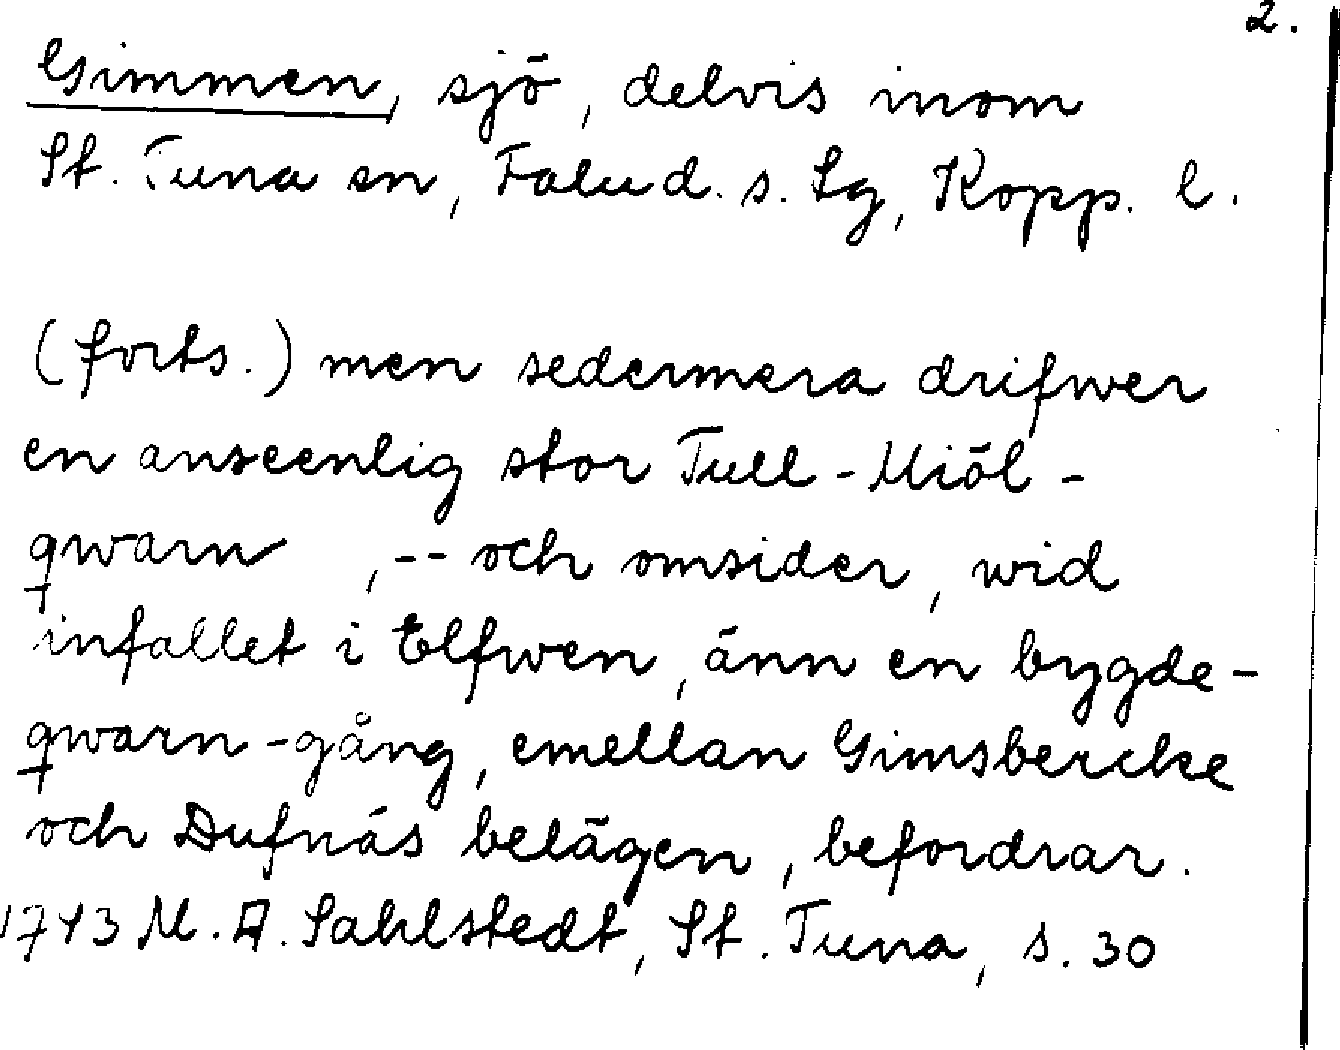 2.
Gimmen, sjö, delvis inom
St. Tuna sn, Falu d. s. lg, Kopp. l.
(forts.) men sedermera drifwer
en anseenlig stor Tull-Miöl-
qwarn , -- och omsider, wid
infallet i Elfwen, änn en bygde-
qwarn-gång, emellan Gimsbercke
och Dufnäs belägen, befordrar.
1743 M. A. Sahlstedt, St. Tuna, s. 30